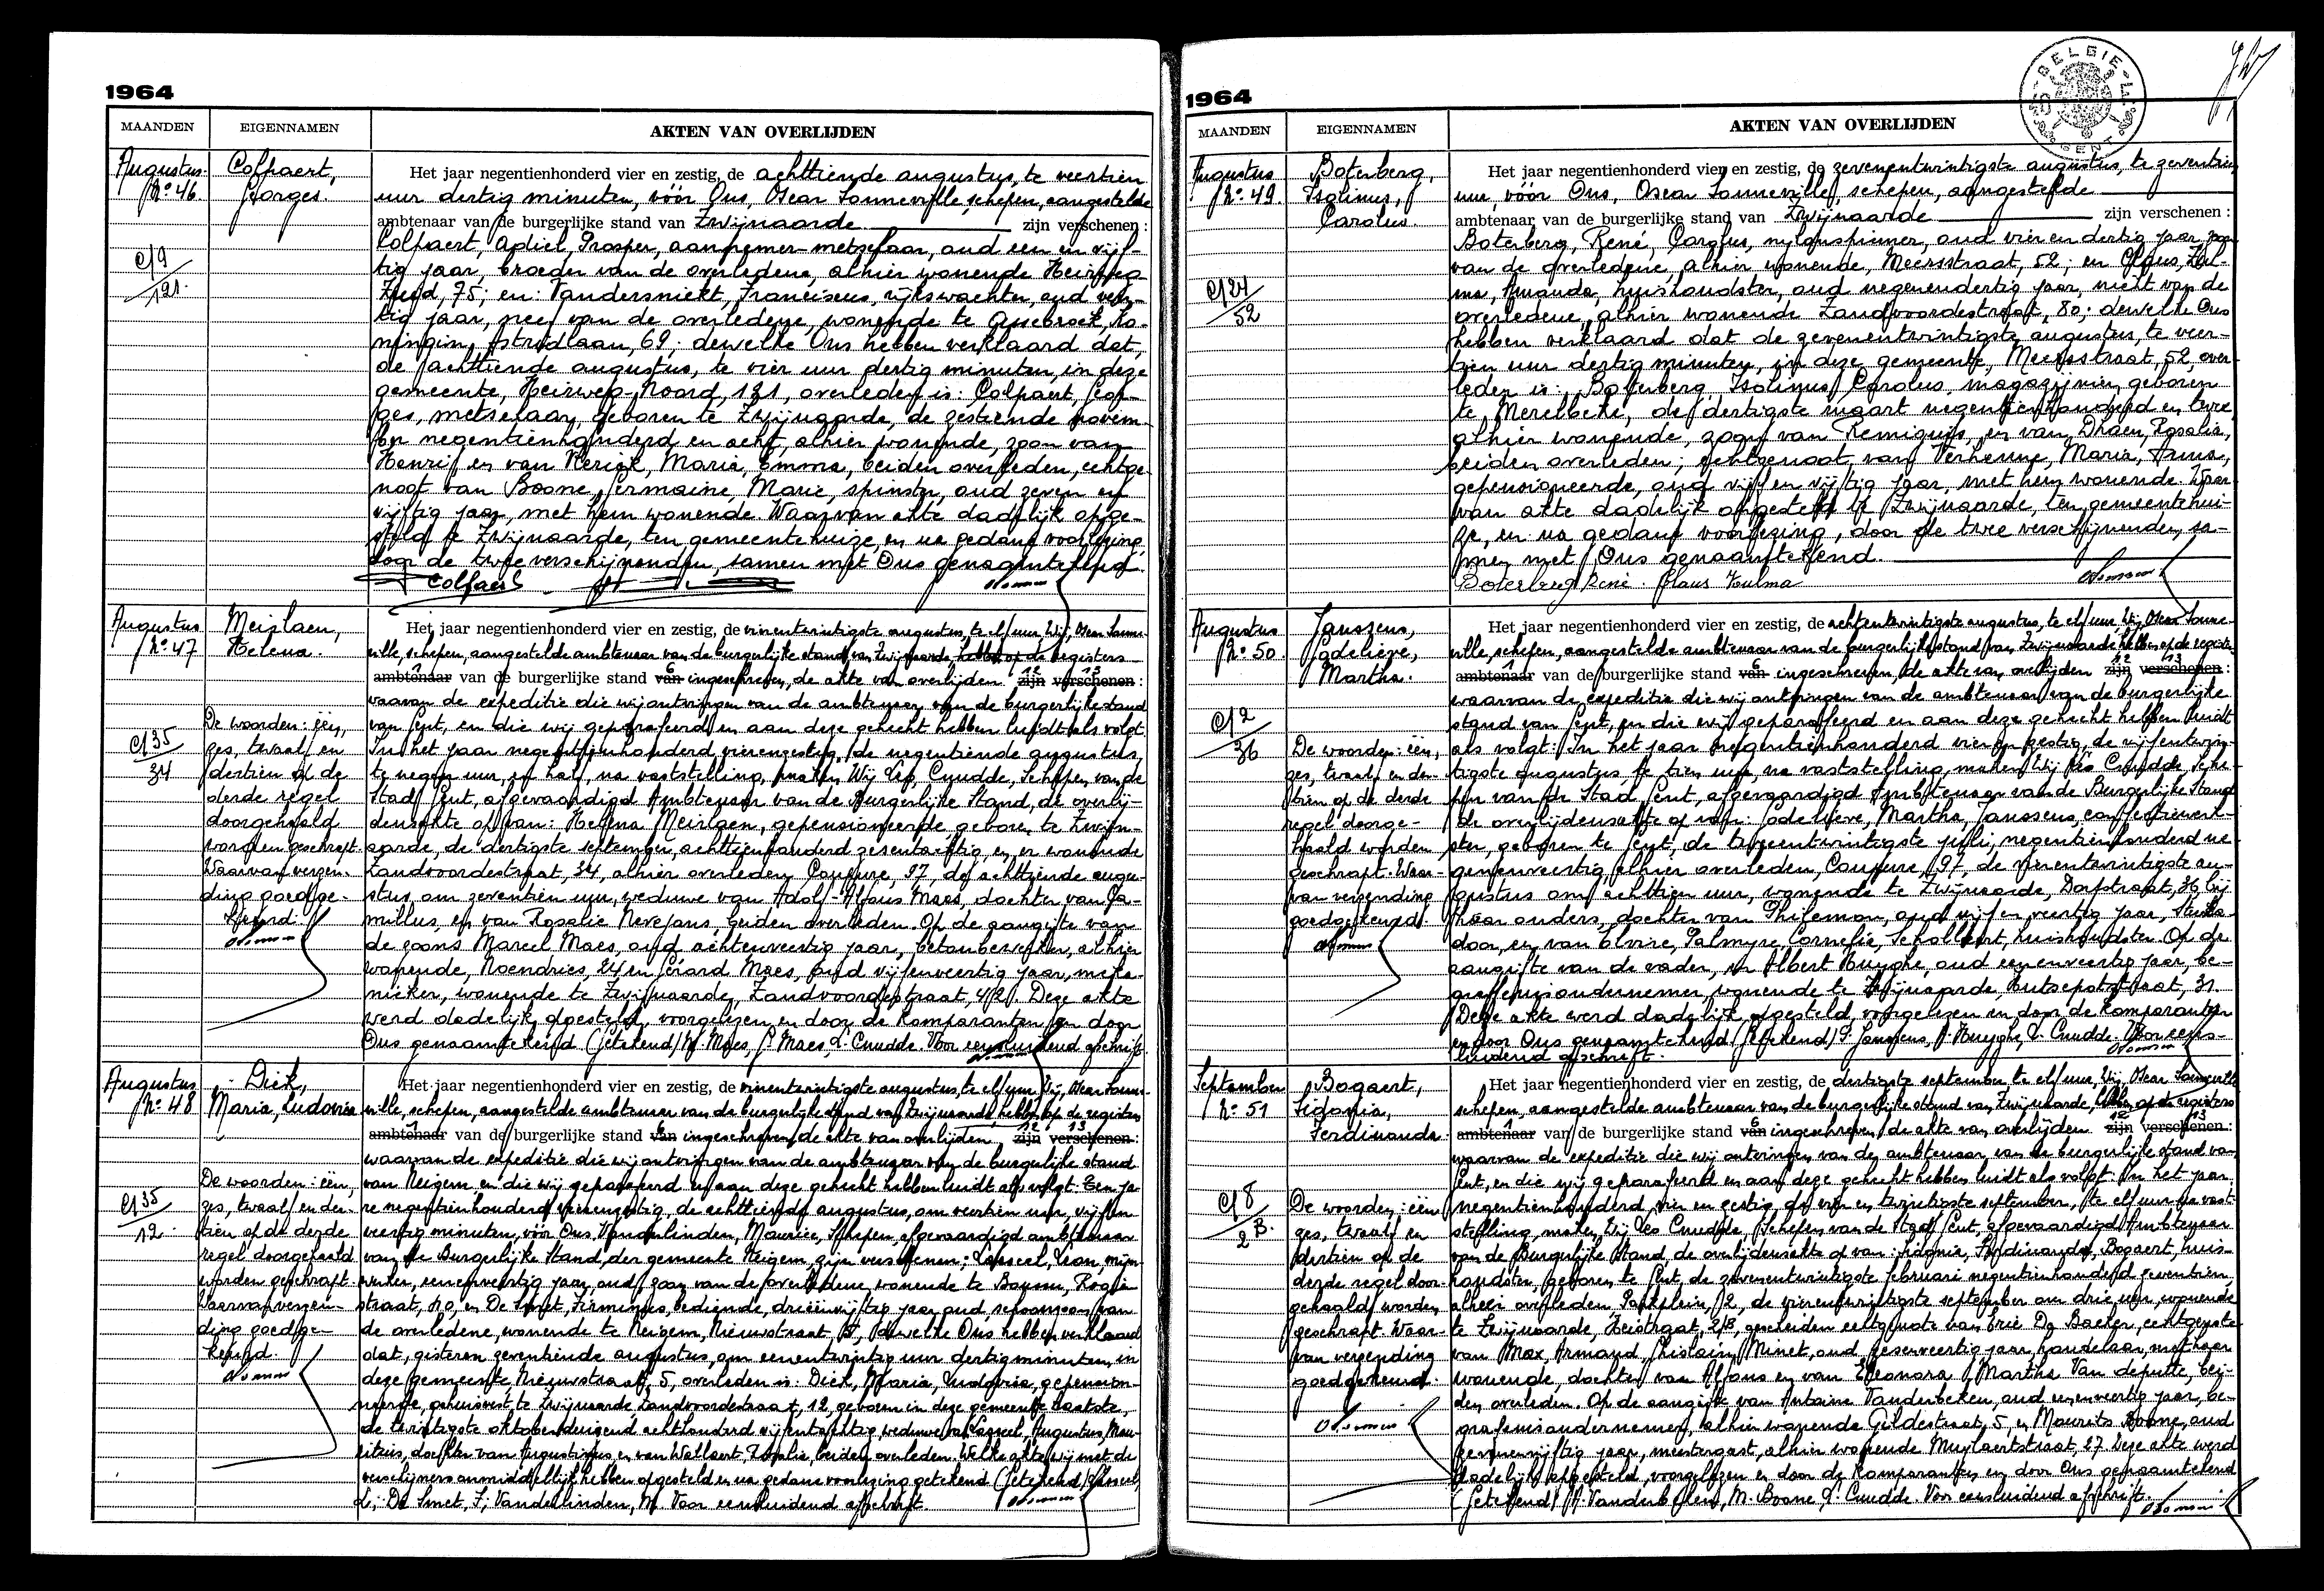 1964
MAANDEN EIGENNAMEN AKTEN VAN OVERLIJDEN
Augustus
Nº 46.
Colpaert,
Georges.
C/9
121.
Het jaar negentienhonderd vier en zestig, de achttiende augustus, te veertien
uur dertig minuten, vóór Ons, Oscar Sonneville, schepen, aangestelde
ambtenaar van de burgerlijke stand van Zwijnaarde zijn verschenen :
Colpaert, Adiel, Prosper, aannemer-metselaar, oud een en vijf-
tig jaar, broeder van de overledene, alhier wonende Heirweg
Zuid, 75; en: Vandersnickt, Franciscus, rijkswachter, oud veer-
tig jaar, neef van de overledene, wonende te Assebroek, Ko-
ningin Astridlaan, 69; dewelke Ons hebben verklaard dat,
de achttiende augustus, te vier uur dertig minuten, in deze
gemeente, Heirweg-Noord, 121, overleden is: Colpaert, Geor-
ges, metselaar, geboren te Zwijnaarde, de zestiende novem-
ber negentienhonderd en acht, alhier wonende, zoon van
Henri en van Kerick, Maria, Emma, beiden overleden, echtge-
noot van Boone, Germaine, Marie, spinster, oud zeven en
vijftig jaar, met hem wonende. Waarvan akte dadelijk opge-
steld te Zwijnaarde, ten gemeentehuize, en na gedane voorlezing,
door de twee verschijnenden, samen met Ons genaamtekend.
Colpaert
Augustus
Nº 47
Meirlaen,
Helena.
C/35
34
De woorden: één,
zes, twaalf en
dertien op de
derde regel
doorgehaald
worden geschrapt.
Waarvan verzen-
ding goedge-
keurd.
Het jaar negentienhonderd vier en zestig, de vierentwintigste augustus, te elf uur, Wij, Oscar Sonne-
ville, schepen, aangestelde ambtenaar van de burgerlijke stand van Zwijnaarde, hebben op de registers
ambtenaar van de burgerlijke stand van ingeschreven, de akte van overlijden zijn verschenen :
waarvan de expeditie die wij ontvingen van de ambtenaar van de burgerlijke stand
van Gent, en die wij geparafeerd en aan deze gehecht hebben luidt als volgt:
In het jaar negentienhonderd vierenzestig, de negentiende augustus,
te negen uur, en half, na vaststelling, maken Wij Leo, Cnudde, Schepen van de
Stad Gent, afgevaardigd Ambtenaar van de Burgerlijke Stand, de overlij-
densakte op van: Helena Meirlaen, gepensioneerde, geboren te Zwijn-
aarde, de dertigste september, achttienhonderd zesentachtig, en er wonende
Zandvoordestraat, 34, alhier overleden, Coupure, 97, de achttiende augus-
tus om zeventien uur, weduwe van Adolf-Alfons Maes, dochter van Ca-
millus, en van Rosalie Nevejans, beiden overleden. Op de aangifte van
de zoons Marcel Maes, oud achtenveertig jaar, betonbewerker, alhier
wonende, Noendries, 24 en Gérard Maes, oud vijfenveertig jaar, meka-
nieker, wonende te Zwijnaarde, Zandvoordestraat, 42. Deze akte
werd dadelijk opgesteld, voorgelezen en door de komparanten en door
Ons genaamtekend (getekend) M. Maes, G. Maes, L. Cnudde. Voor eensluidend afschrift.
Augustus
Nº 48
Dick,
Maria, Ludovica
C/35
12.
De woorden: één,
zes, twaalf en der-
tien op de derde
regel doorgehaald
worden geschrapt.
Waarvan verzen-
ding goedge-
keurd.
Het jaar negentienhonderd vier en zestig, de vierentwintigste augustus, te elf uur, Wij, Oscar Sonne-
ville, schepen, aangestelde ambtenaar van de burgerlijke stand van Zwijnaarde, hebben op de registers
ambtenaar van de burgerlijke stand van ingeschreven, de akte van overlijden zijn verschenen :
waarvan de expeditie die wij ontvingen van de ambtenaar van de burgerlijke stand
van Neigem, en die wij geparafeerd en aan deze gehecht hebben luidt als volgt: Een ja-
re negentienhonderd vierenzestig, de achttiende augustus, om veertien uur, vijfen-
veertig minuten, vóór Ons Vanderlinden, Maurice, Schepen, afgevaardigd ambtenaar
van de Burgerlijke Stand, der gemeente Neigem, zijn verschenen:
werker, eenenveertig jaar, oud, zoon van de overledene, wonende te
straat, 40, en De Smet, Firminus, bediende, drieënvijftig jaar oud, schoonzoon van
de overledene, wonende te Neigem, Nieuwstraat, 5, dewelke Ons hebben verklaard
dat, gisteren zeventiende augustus, om eenentwintig uur dertig minuten, in
deze gemeente, Nieuwstraat, 5, overleden is: Dick, Maria, Ludovica, gepension-
neerde, gehuisvest, te Zwijnaarde Zandvoordestraat, 12, geboren in deze gemeente
de twintigste oktober duizend achthonderd vijfentachtig, weduwe van Augustus, Mau-
ritius, dochter van Augustinus en van beiden overleden. Welke akte wij met de
verschijners onmiddellijk hebben opgesteld en na gedane voorlezing getekend. (Getekend)
L; De Smet, F; Vanderlinden, M. Voor eensluidend afschrift.
BELGIE
GENT
1964
MAANDEN EIGENNAMEN AKTEN VAN OVERLIJDEN
Augustus
Nº 49.
Boterberg,
Isolinus,
Carolus.
C/24
52
Het jaar negentienhonderd vier en zestig, de zevenentwintigste augustus, te zeventien
uur, vóór Ons, Oscar Sonneville, schepen, aangestelde
ambtenaar van de burgerlijke stand van Zwijnaarde zijn verschenen :
Boterberg, René, Carolus, nylonspinner, oud vier en dertig jaar, zoon
van de overledene, alhier wonende, Meersstraat, 52; en Claus, Zul-
ma, Amanda, huishoudster, oud negenendertig jaar, nicht van de
overledene, alhier wonende Zandvoordestraat, 80; dewelke Ons
hebben verklaard dat de zevenentwintigste augustus, te veer-
tien uur dertig minuten, in deze gemeente, Meersstraat, 52, over-
leden is: Boterberg, Isolinus, Carolus, magazijnier, geboren
te Merelbeke, de dertigste maart negentienhonderd en twee
alhier wonende, zoon van Remigius, en van Dhaen, Rosalia,
beiden overleden; echtgenoot van Maria,
gepensioneerde, oud vijf en vijftig jaar, met hem wonende. Waar-
van akte dadelijk opgesteld te Zwijnaarde, ten gemeentehui-
ze, en na gedane voorlezing, door de twee verschijnenden, sa-
men met Ons genaamtekend.
Boterberg René. Claus Zulma
Augustus
Nº 50.
Janssens,
Godelieve,
Martha.
C/2
36
De woorden: één,
zes, twaalf, en der-
tien op de derde
regel doorge-
haald worden
geschrapt. Waar-
van verzending
goedgekeurd.
Het jaar negentienhonderd vier en zestig, de achtentwintigste augustus, te elf uur, Wij, Oscar Sonne-
ville, schepen, aangestelde ambtenaar van de burgerlijke stand van Zwijnaarde, hebben op de registers
ambtenaar van de burgerlijke stand van ingeschreven, de akte van overlijden zijn verschenen :
waarvan de expeditie die wij ontvingen van de ambtenaar van de burgerlijke
stand van Gent, en die wij geparafeerd en aan deze gehecht hebben luidt
als volgt: In het jaar negentienhonderd vier en zestig, de vijfentwin-
tigste augustus te tien uur, na vaststelling, maken Wij Leo Cnudde, Sche-
pen van de Stad Gent, afgevaardigd Ambtenaar van de Burgerlijke Stand
de overlijdensakte op van: Godelieve, Martha, Janssens, confectiewerk-
ster, geboren te Gent, de tweeentwintigste juli, negentienhonderd ne-
genenveertig, alhier overleden, Coupure, 97, de vierentwintigste au-
gustus om achttien uur, wonende te Zwijnaarde, Dorpstraat, 36, bij
haar ouders, dochter van Philemon, oud vijf en veertig jaar, stuka-
door, en van Elvire, Palmyre, Cornelie, Schollaert, huishoudster. Op de
aangifte van de vader, en Albert Huyghe, oud eenenveertig jaar, be-
grafenisondernemer, wonende te Zwijnaarde, Hutsepotstraat, 31.
Deze akte werd dadelijk opgesteld, voorgelezen en door de komparanten
en door Ons genaamtekend (Getekend) P. Janssens, A. Huyghe, L. Cnudde. Voor eens-
luidend afschrift.
September
Nº 51
Bogaert,
Sidonia,
Ferdinanda.
C/8
2 B.
De woorden: één
zes, twaalf en
dertien op de
derde regel door-
gehaald worden
geschrapt. Waar-
van verzending
goedgekeurd.
Het jaar negentienhonderd vier en zestig, de dertigste september te elf uur, Wij, Oscar Sonneville
schepen, aangestelde ambtenaar van de burgerlijke stand van Zwijnaarde, hebben op de registers
ambtenaar van de burgerlijke stand van ingeschreven, de akte van overlijden zijn verschenen :
waarvan de expeditie die wij ontvingen van de ambtenaar, van de burgerlijke stand van
Gent, en die wij geparafeerd en aan deze gehecht hebben luidt als volgt: In het jaar
negentienhonderd, vier en zestig, de vier en twintigste september, te elf uur, na vast-
stelling, maken Wij Leo Cnudde, Schepen van de Stad Gent, afgevaardigd Ambtenaar
van de Burgerlijke Stand de overlijdensakte op van: Sidonia, Ferdinanda, Bogaert, huis-
houdster, geboren te Gent, de zevenentwintigste februari negentienhonderd zeventien,
alhier overleden Parkplein, 2, de vierentwintigste september om drie uur, wonende
te Zwijnaarde, Heistraat, 2/B, gescheiden echtgenote van De Backer, echtgenote
van Max, Armand, Ghislain, Minet, oud zesenveertig jaar, handelaar, met haar
wonende, dochter van Alfons en van Eleonora, Martha Van deputte, bei-
den overleden. Op de aangifte van Antoine Vanderbeken, oud eenenveertig jaar, be-
grafenisondernemer, alhier wonende Gildestraat, 5, en Maurits Boone, oud
zevenenvijftig jaar, meestergast, alhier wonende Muylaertstraat, 67. Deze akte werd
dadelijk opgesteld, voorgelezen en door de komparanten en door Ons genaamtekend
(Getekend) A. Vanderbeken, M. Boone, L. Cnudde. Voor eensluidend afschrift.